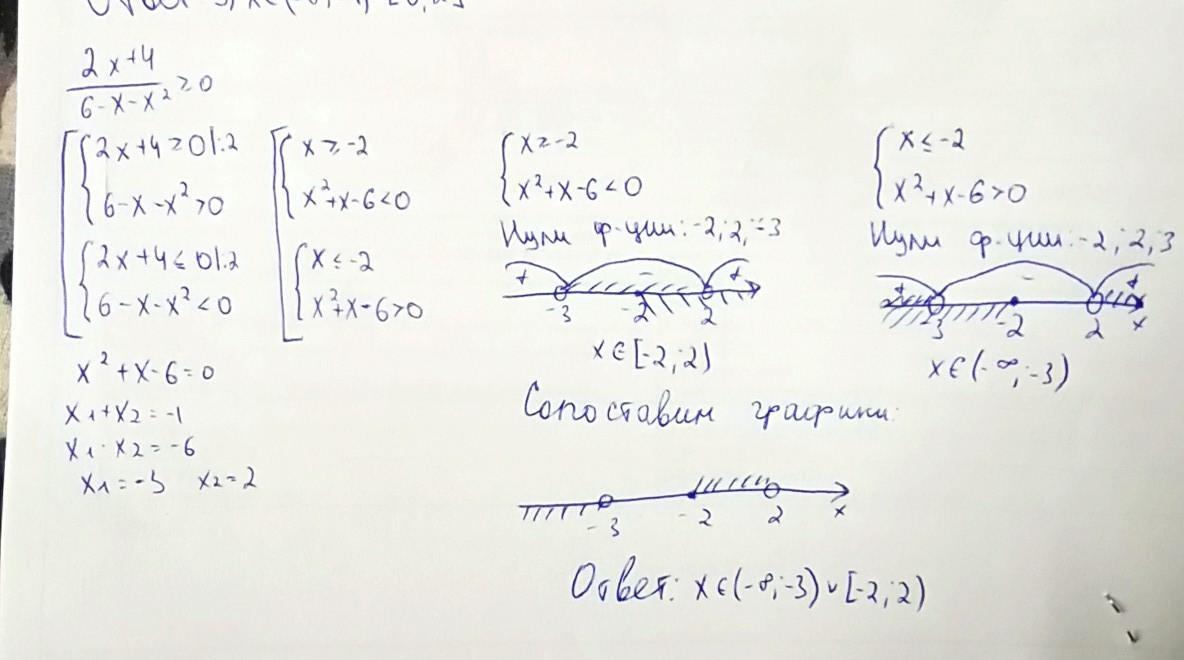 2x+4
6-x-x² ≥0
2x+4≥0|:2
6-x-x²>0
2x+4≤0|:2
6-x-x²<0
x≥-2
x²+x-6<0
x≤-2
x²+x-6>0
x²+x-6=0
x1+x2=-1
x1·x2=-6
x1=-3 x2=2
x≥-2
x²+x-6<0
Нули ф-ции:-2;2;-3
+ - +
-3 -2 2
x∈[-2;2)
x≤-2
x²+x-6>0
Нули ф-ции:-2;2;3
+ - +
-3 -2 2 x
x∈(-∞;-3)
Сопоставим графики:
-3 -2 2 x
Ответ: x∈(-∞;-3)∪[-2;2)